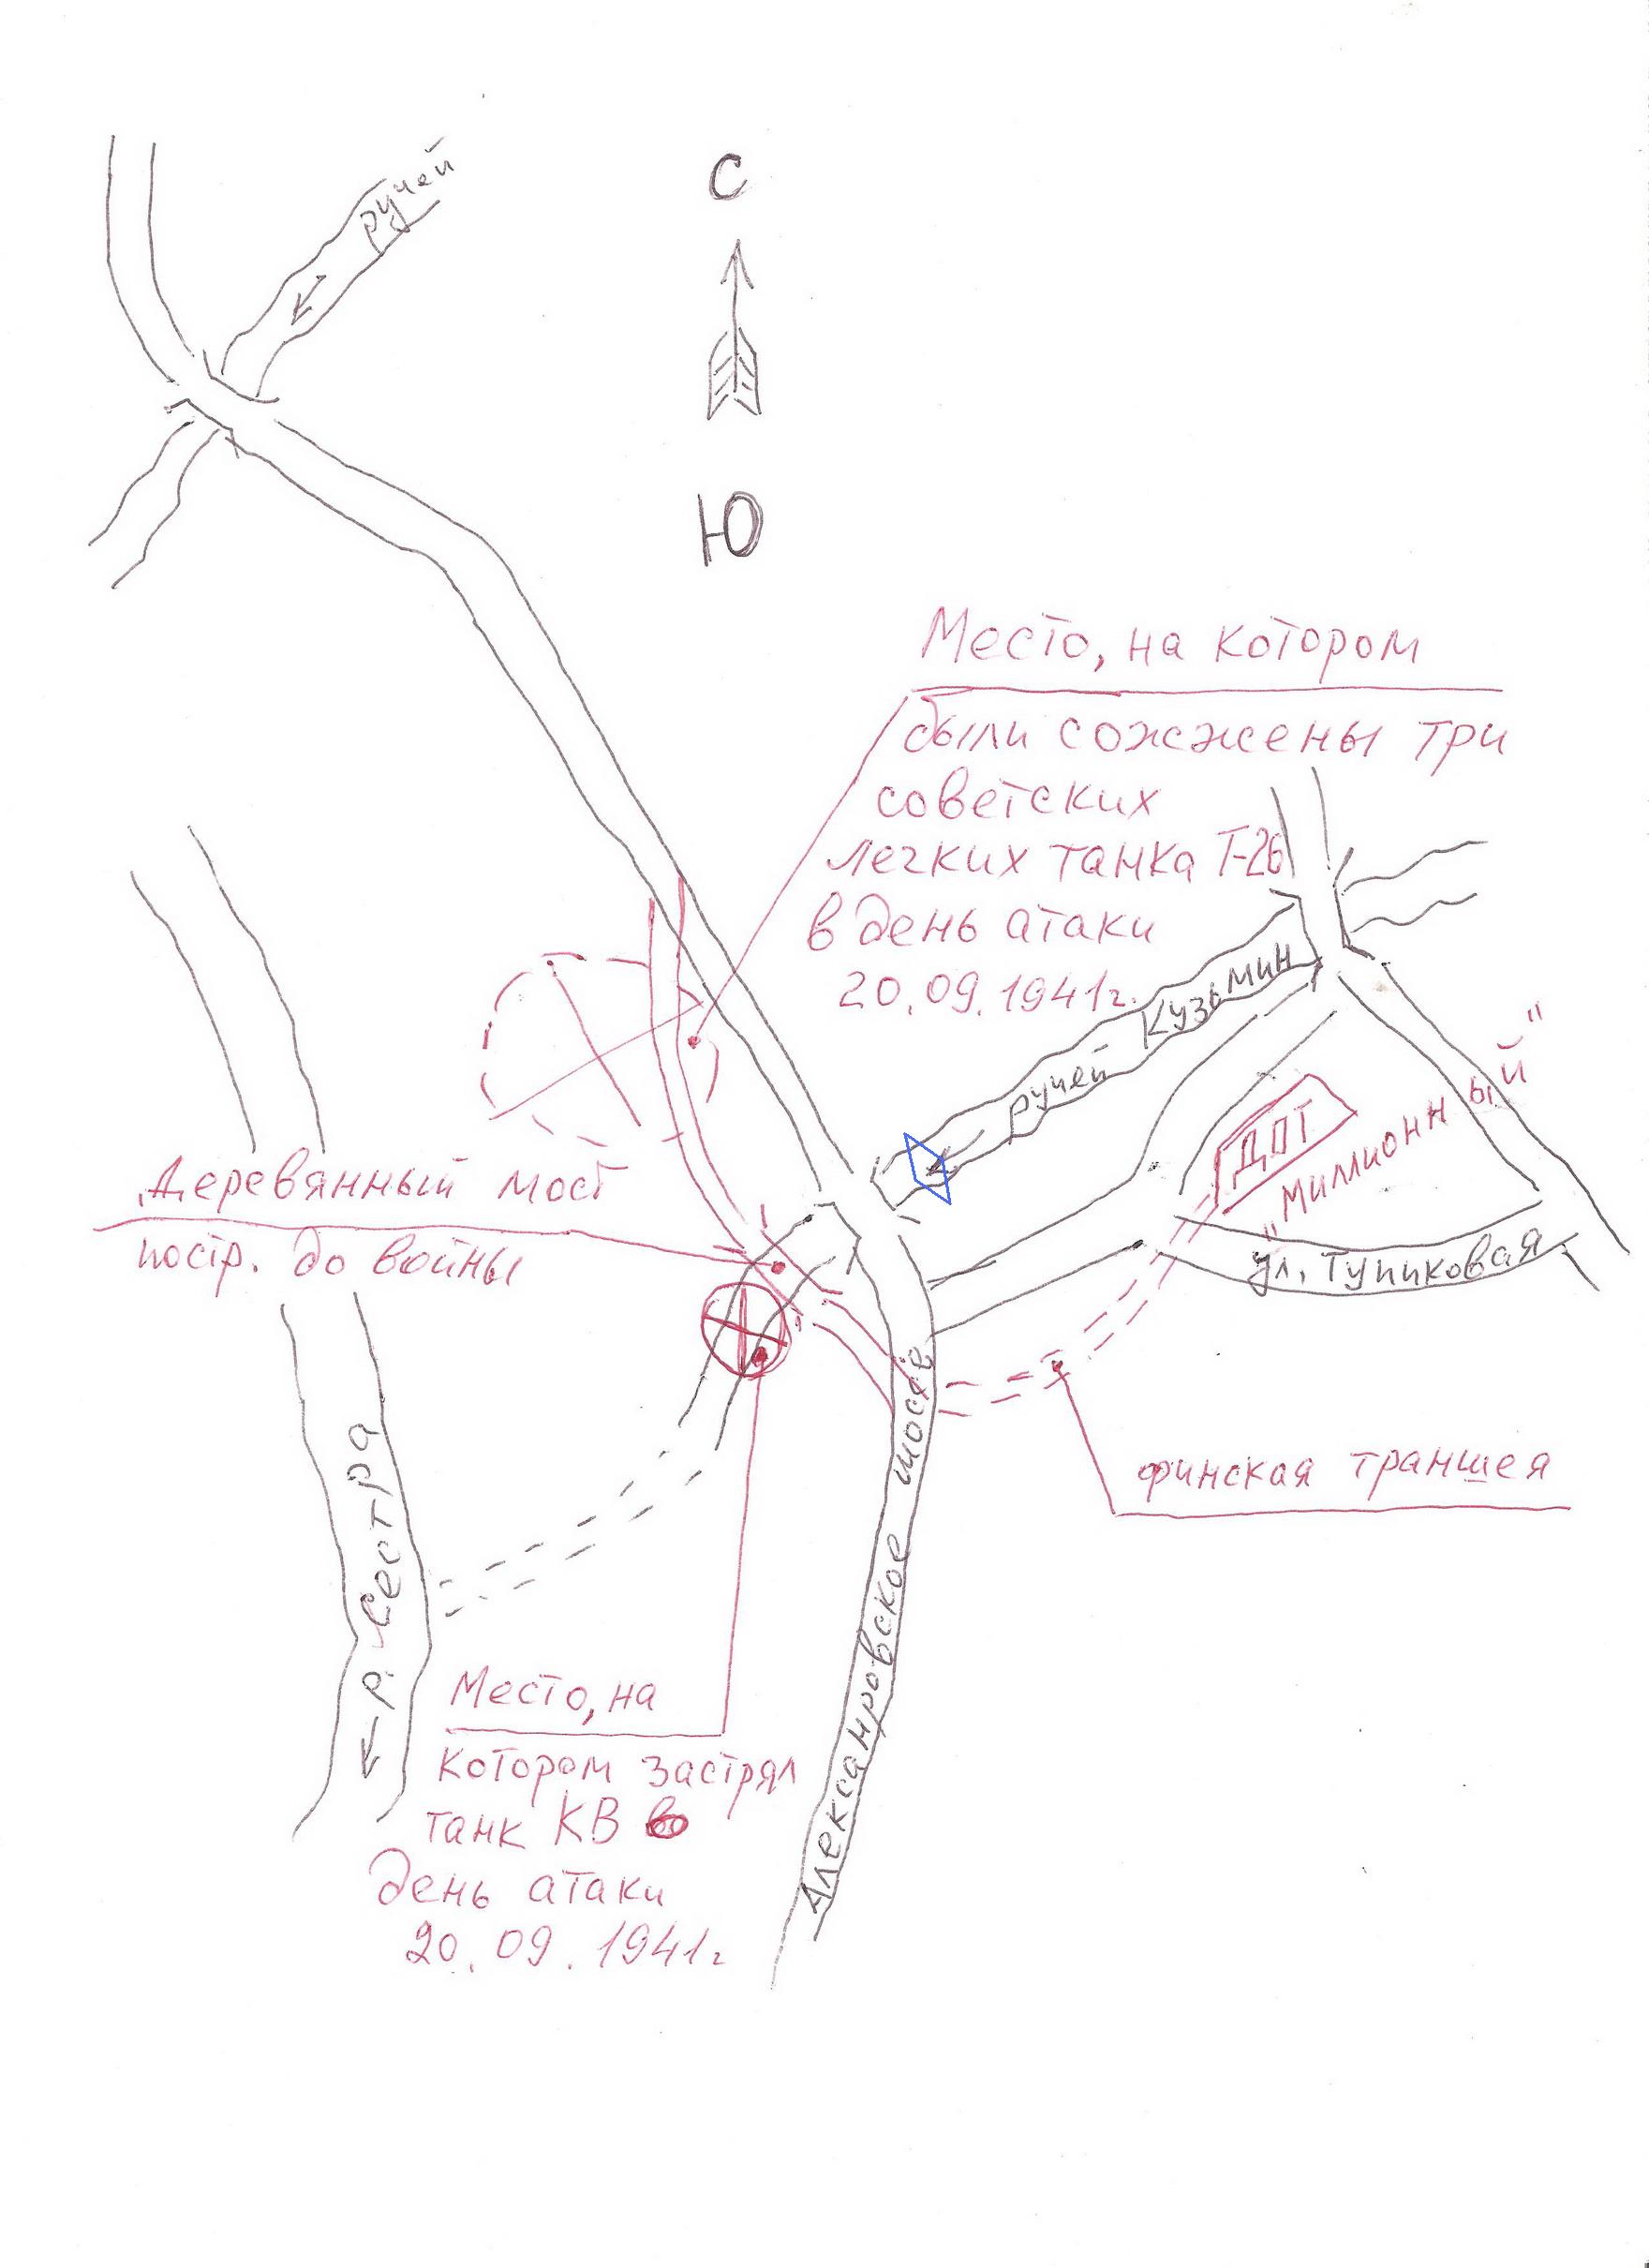 ручей
С
Ю
Место, на котором
были сожжены три
советских
легких танка Т-26
в день атаки
20.09.1941г.
ручей Кузьмин
ДОТ
"Миллионный"
ул. Тупиковая
Деревянный мост
постр. до войны
финская траншея
р. Сестра
Александровское шоссе
Место, на
котором застрял
танк КВ во
день атаки
20.09.1941г